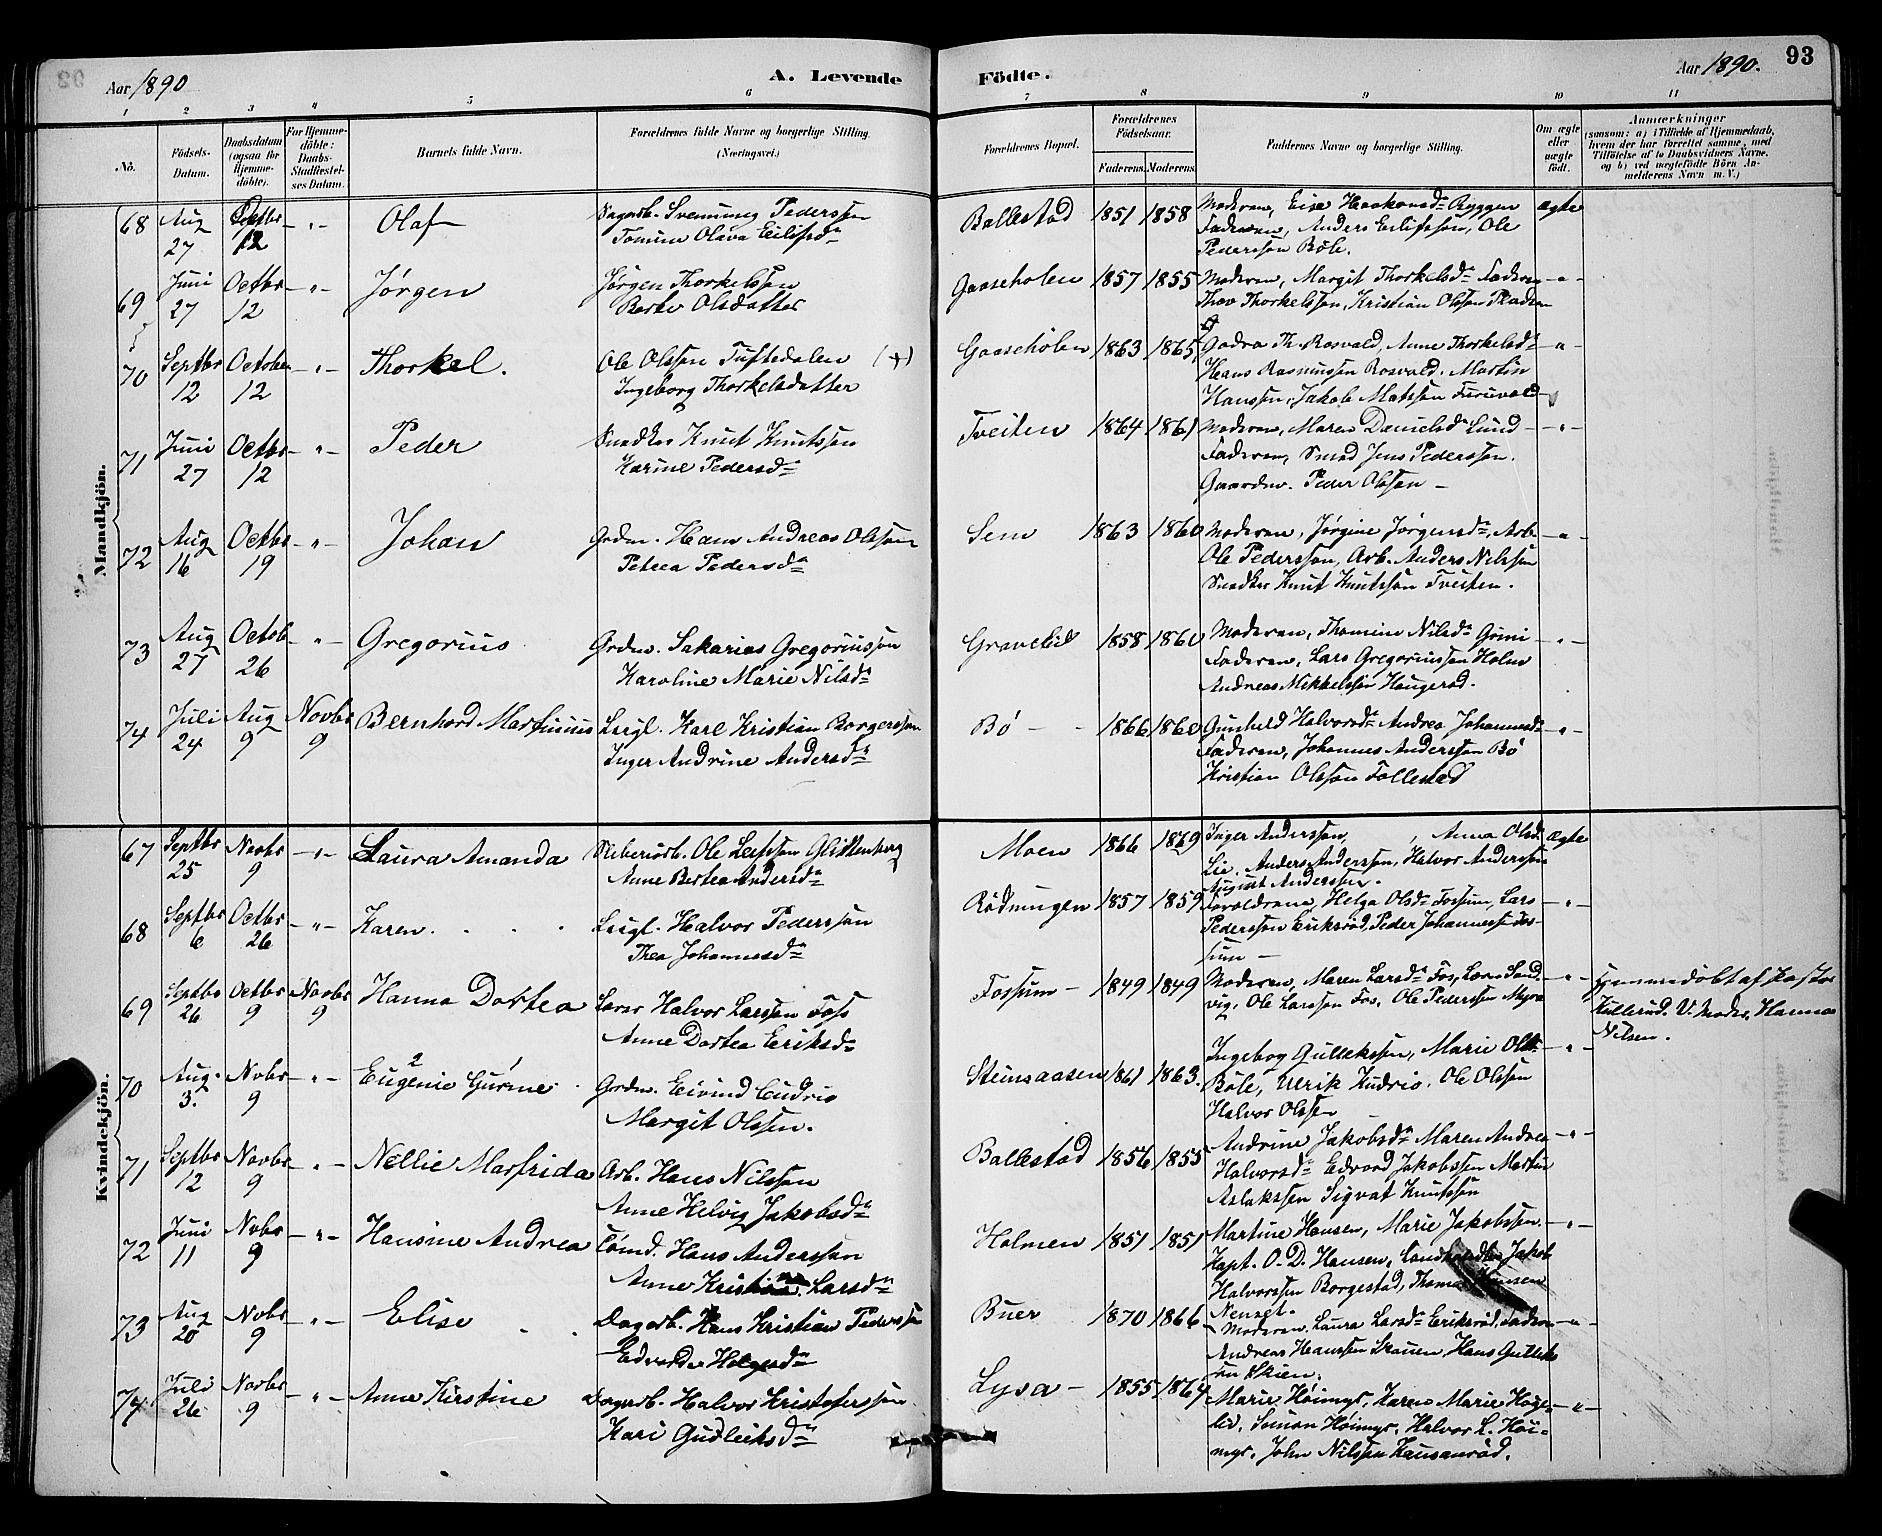 Aar 1890
A. Levende
Födte.
Aar 1890.
93
1 2 3 4 5 6 7 8 9 10 11
No.
Födsels-
Datum.
Daabsdatum
(ogsaa for
Hjemme-
döbte).
For Hjemme-
döbte:
Daabs-
Stadfæstel-
ses Datum.
Barnets fulde Navn.
Forældrenes fulde Navne og borgerlige Stilling.
(Næringsvei.)
Forældrenes Bopæl.
Forældrenes
Födselsaar.
Faderens. Moderens.
Faddernes Navne og borgerlige Stilling.
Om ægte
eller
uægte
født.
Anmærkninger
(saasom: a) i Tilfælde af Hjemmedaab,
hvem der har forrettet samme, med
Tilföielse af to Daabsvidners Navne,
og b) ved uægtefödte Börn An-
melderens Navn m. V.)
Mandkjön.
68 Aug 27 Octbr 12 - " - Olaf
Dagarb. Svennung Pederssen
Tomine Olava Eilifsd.
Ballestad 1851 1858
Moderen, Elise Haakonsd. Ryggen
Faderen, Anders Eilifssøn, Ole
Pederssøn Bøle.
ægte
69 Juni 27 Octbr 12 - " - Jørgen
Jørgen Thorkelssen
Berte Olsdatter
Gaaseholen 1857 1855
Moderen, Margit Thorkelsd. Faderen
Thov Thorkelssen, Kristian Olssøn
- " -
70 Septbr 12 October 12 - " - Thorkel.
Ole Olssen Tuftedalen (+)
Ingeborg Thorkelsdatter
Gaaseholen 1863 1865
Th. Rosvald, Anne Thorkelsd.
Hans Rasmussen Rosvald. Martin
Hanssen, Jakob Matssen Furuvald
- " -
71 Juni 27 Octbr 12 - " - Peder
Snedker Knut Knutssen
Karine Pedersd.
Tveiten 1864 1861
Moderen, Maren Danielsd. Lund
Faderen, Smed Jens Pederssen.
Gaardm. Peder Olssen -
- " -
72 Aug 16 Octbr 19 - " - Johan
Grdm. Hans Andreas Olssen
Petrea Pedersd.
Sem 1863 1860
Moderen, Jørgine Jørgensd. Arb.
Ole Pederssøn, Arb. Anders Nilssen
Snedker Knut Knutssøn Tveiten.
- " -
73 Aug 27 Octob 26 - " - Gregorius
Grdm. Sakarias Gregoriussøn
Karoline Marie Nilsd.
Gravelid 1858 1860
Moderen, Thomine Nilsd. Grini
Faderen, Lars Gregoriussøn Holm
Andreas Mikkelssøn Haugerød.
- " -
74 Juli 24 Aug 9 Novbr 9 Bernhard Martinius
Leigl. Karl Kristian Borgerssen
Inger Andrine Andersd.
Bø - - 1866 1860
Gunhild Halvorsd. Andrea Johannesd.
Faderen, Johannes Anderssen Bø
Kristian Olssøn Follestad
- " -
Kvindekjön.
67 Septbr 25 Novbr 9 - " - Laura Amanda
Sliberiarb. Ole Leifssen Glittenberg
Anne Bertea Andersd.
Moen 1866 1869
Inger Anderssen, Anna Olsd.
Lie. Anders Anderssen, Halvor Anderssen
August Anderssen.
ægte
68 Septbr 6 Octbr 26 - " - Karen.
Leigl. Halvor Pederssen
Thea Johannesd.
Rødningen 1857 1859
Forældrene, Helga Olsd. Fossum, Lars
Pederssøn Eriksrød, Peder Johannessen Fos-
sum -
- " -
69 Septbr 26 Octbr 9 Novbr 9 Hanna Dortea
Lærer Halvor Larssen Foss
Anne Dortea Eriksd.
Fossum - 1849 1849
Moderen, Maren Larsd. Fos, Lærer Sand-
vig, Ole Larssen Fos, Ole Pederssen Myra
- " -
Hjemmedøbt af Pastor
Kullerud. V. Moder, Hanna
Nilsen.
70 Aug. 3. Novbr 9 - " - Eugenie Gurine
Grdm. Eivind Cudrio
Margit Olssen.
Steinsaasen 1861 1863.
Ingebog Gulleksen, Marie Olss.
Bøle, Ulrik Kudrio. Ole Olssen
Halvor Olssen
- " -
71 Septbr 12 Novbr 9 - " - Nellie Marfrida
Arb. Hans Nilssen
Anne Helvig Jakobsd.
Ballestad 1856 1855
Andrine Jakobsd. Maren Andrea
Halvorsd. Edvard Jakobssen Martin
Aslakssen Sigvat Knutssen
- " -
72 Juni 11 Novbr 9 - " - Hansine Andrea
Tømd. Hans Anderssen
Anne Kristine Larsd.
Holmen 1851 1851
Martine Hansen, Marie Jakobssen.
Kapt. O. D. Hansen, Jakob
Halvorssen Borgestad, Thomas Hansen
Nenset.
- " -
73 Aug 20 Novbr 9 - " - Elise
Dagarb. Hans Kristian Pederssen
Edvardine Helgesd.
Buer 1870 1866
Moderen, Laura Larsd. Eriksrød, Faderen
Andreas Hanssen Skauen, Hans Gulleks
sen Skien.
- " -
74 Juli 26 Novbr 9 - " - Anne Kirstine
Dagarb. Halvor Kristofferssen
Kari Gudleiksd.
Lysa - 1855 1864
Marie Høimyr, Karen Marie Hoge-
lid, Simon Høimyr, Halvor L. Høi-
myr, John Nilssen Hansanrød.
- " -